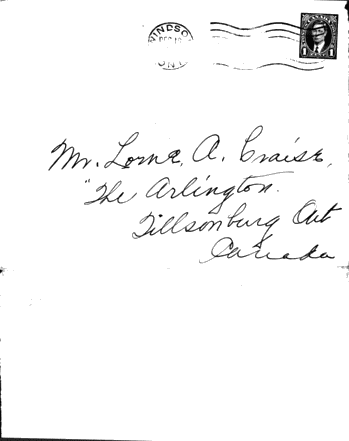 WINDSOR
DEC 19
ONT
1
Mr. Lorne A. Craise,
"The Arlington.
Tillsonburg Ont
Canada